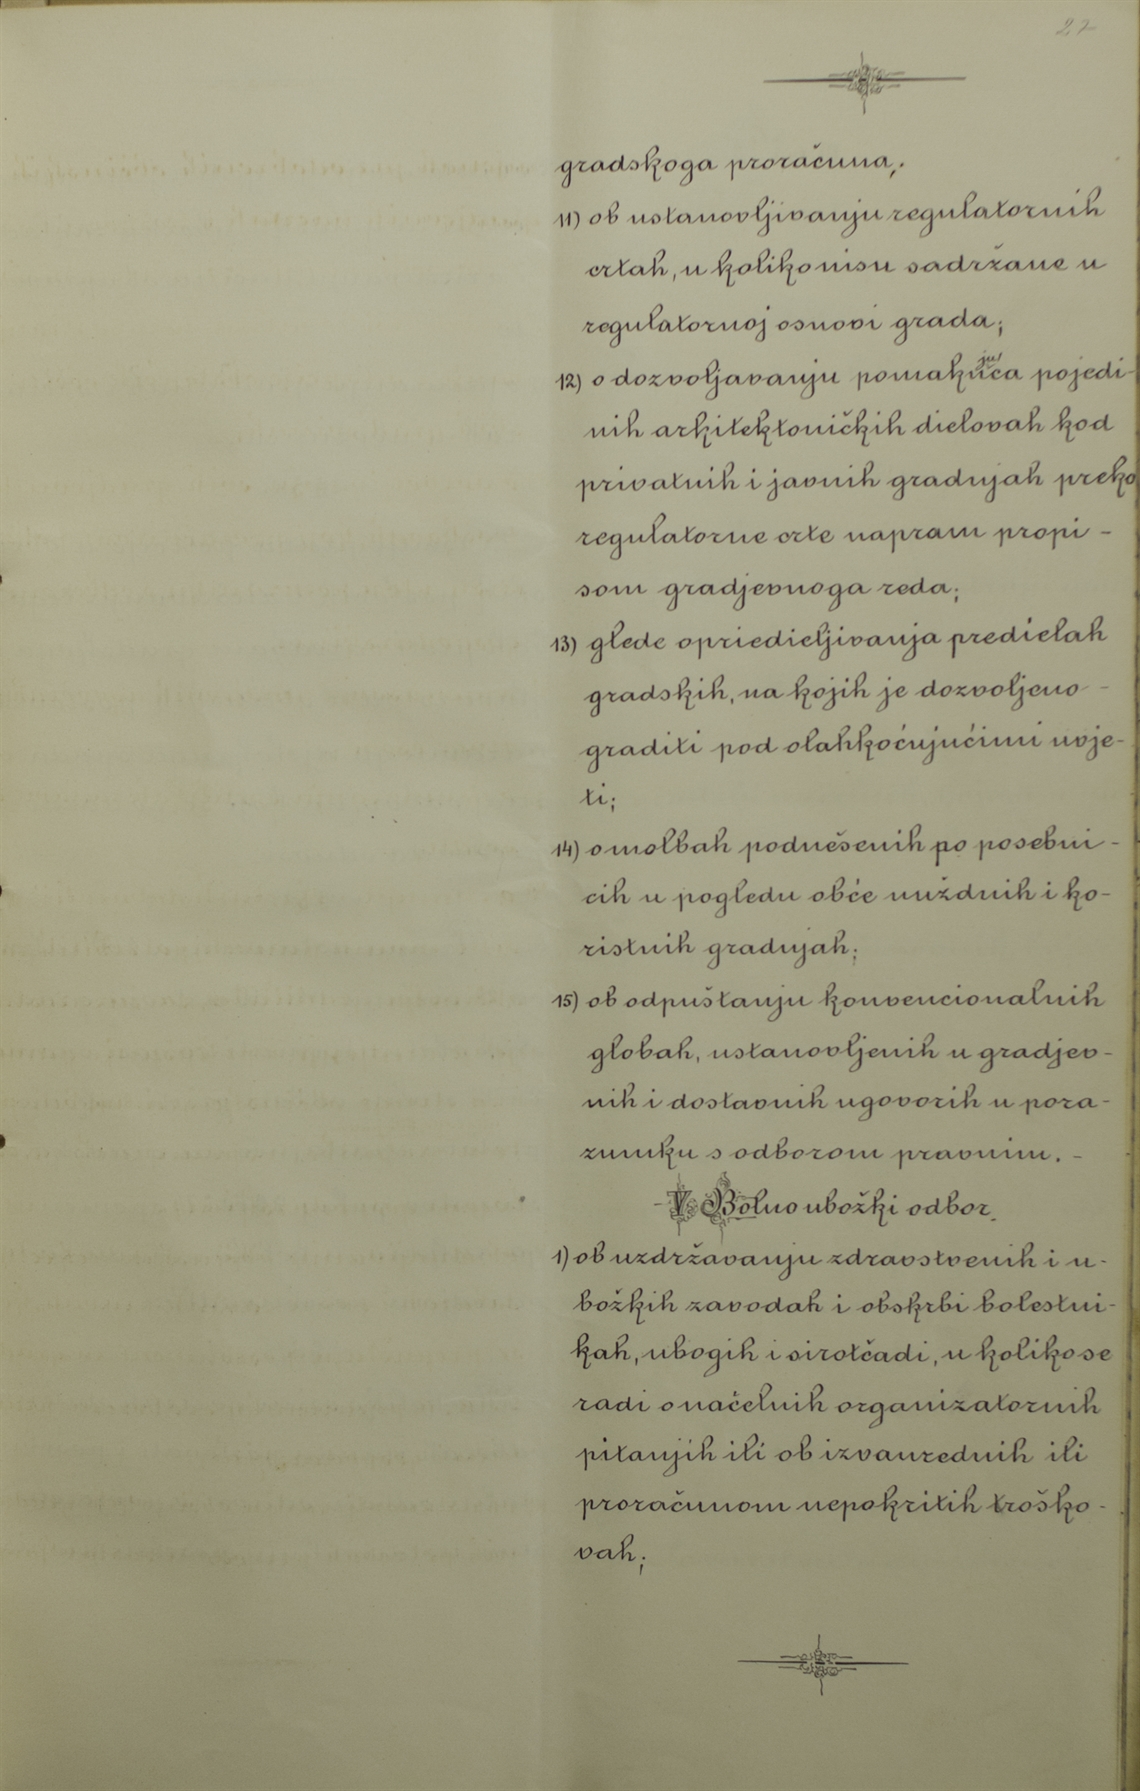 27
gradskoga proračuna;
11) ob ustanovljivanju regulatornih
crtah, u koliko nisu sadržane u
regulatornoj osnovi grada;
12) o dozvoljavanju pomaknjuća pojedi-
nih arkitektoničkih dielovah kod
privatnih i javnih gradnjah preko
regulatorne crte napram propi-
som gradjevnoga reda;
13) glede opriedieljivanja predielah
gradskih, na kojih je dozvoljeno -
graditi pod olahkoćujućimi uvje-
ti;
14) o molbah podnešenih po posebni-
cih u pogledu obće nuždnih i ko-
ristnih gradnjah;
15) ob odpuštanju konvencionalnih
globah, ustanovljenih u gradjev-
nih i dostavnih ugovorih u pora-
zumku s odborom pravnim. -
- V. Bolno ubožki odbor.
1) ob uzdržavanju zdravstvenih i u-
božkih zavodah i obskrbi bolestni-
kah, ubogih i sirotčadi, u koliko se
radi o načelnih organizatornih
pitanjih ili ob izvanrednih ili
proračunom nepokritih troško-
vah;